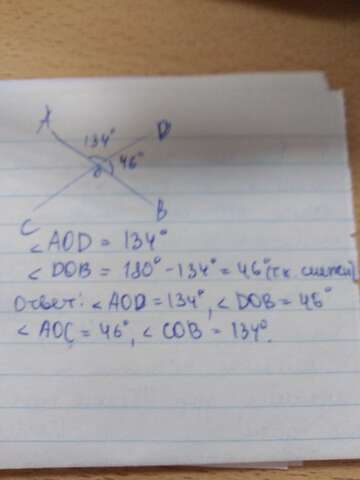 A
134° D
O 46°
C
B
< AOD = 134°
< DOB = 180° - 134° = 46° (т.к. смежн)
Ответ: < AOD = 134°, < DOB = 46°
< AOC = 46°, < COB = 134°.